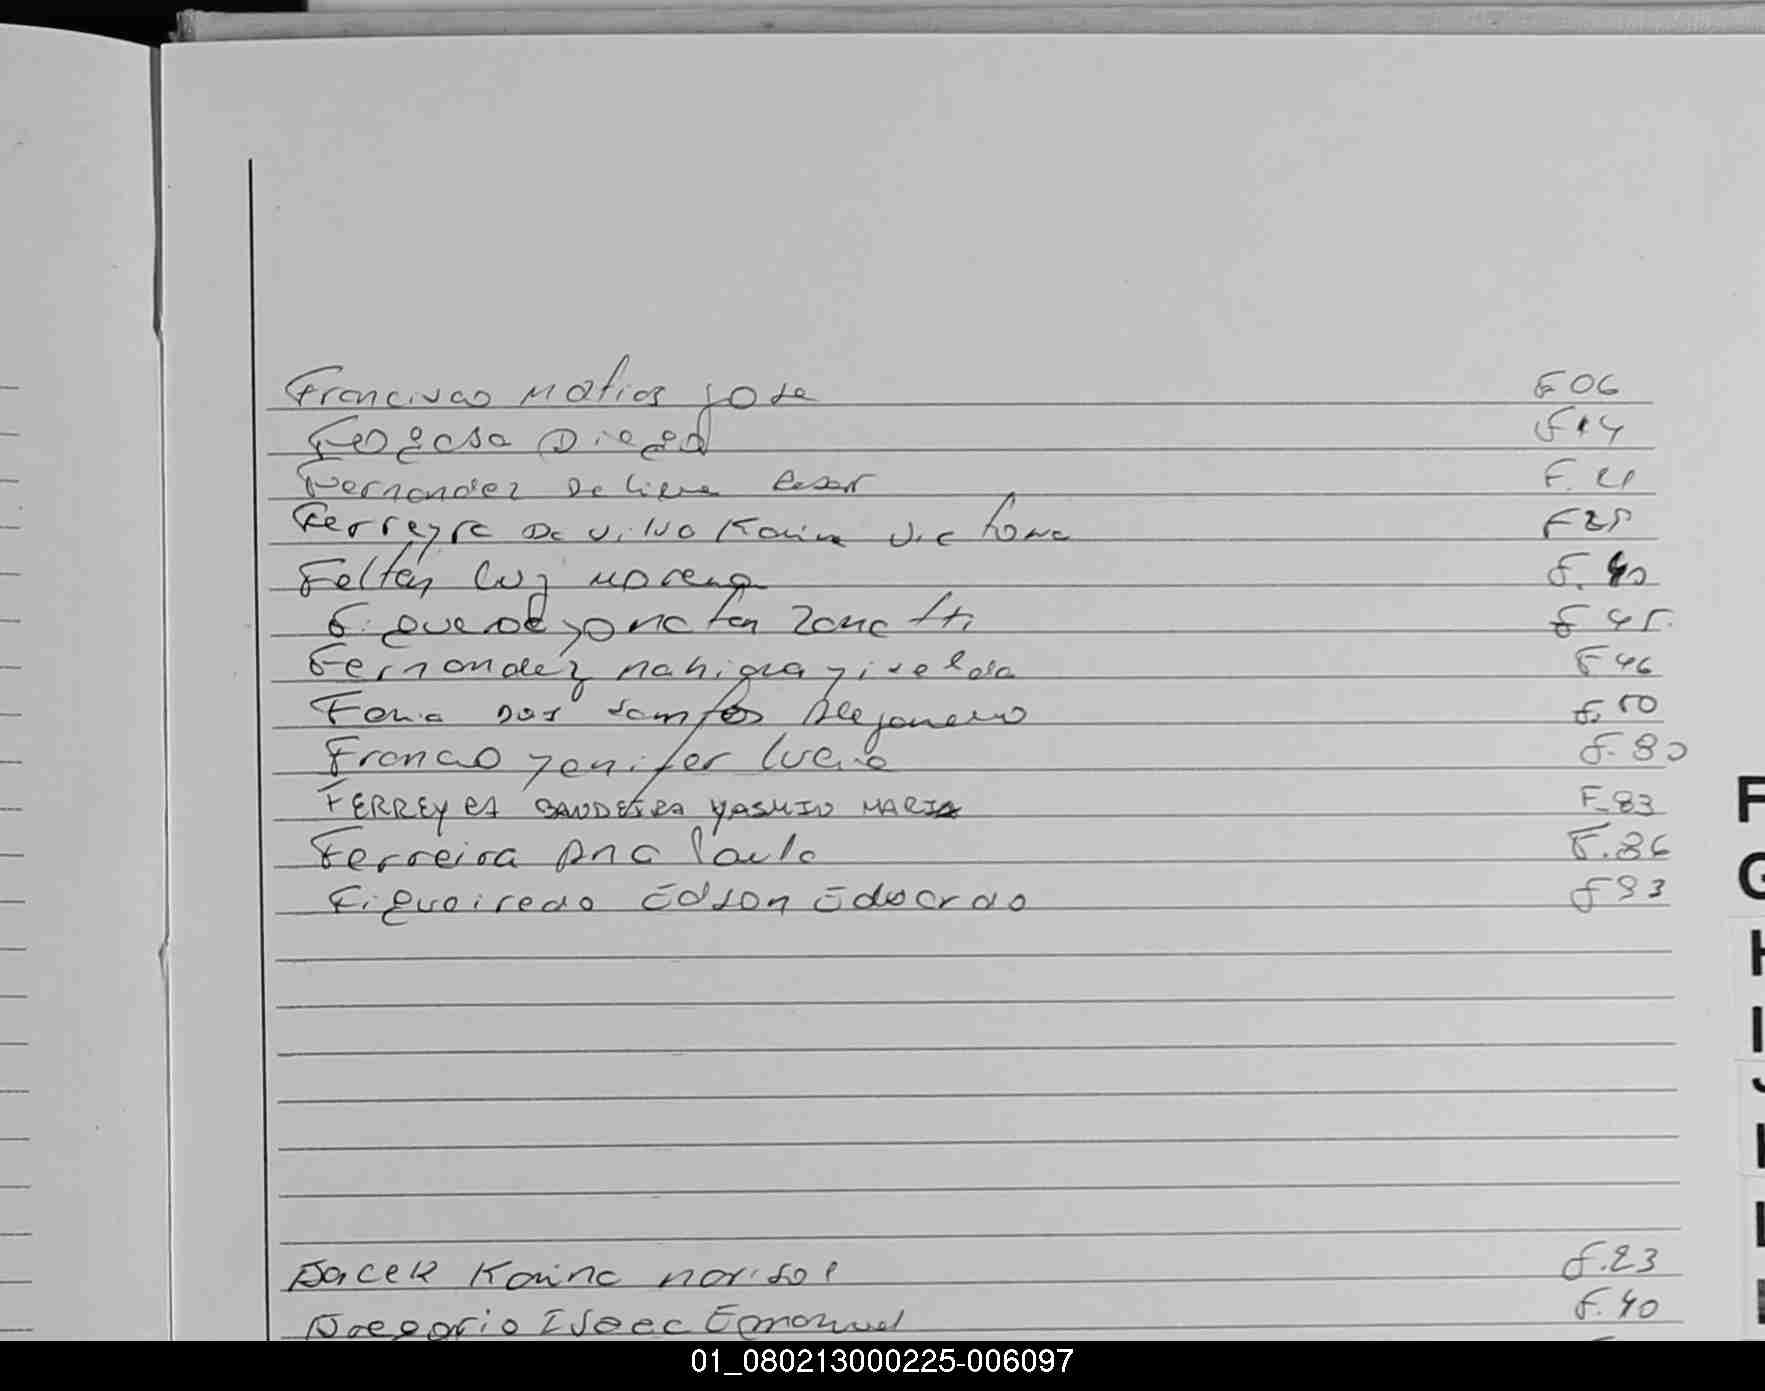 Francisco Matias Jose F 06
Fogasa Diego F 14
Fernandez De Lima Cesar F. 21
Ferreyra Da Silva Karina Victoria F 25
Feltan Luz Morena F. 40
Figueredo Jonatan Zanatti F 45
Fernandez Nahiara Yiselda F 46
Faria Dos Santos Alejandro F. 50
Franco Yenifer Lucia F. 80
FERREYRA BANDEIRA YASMIN MARIA F_83
Ferreira Ana Paula F. 86
Figueiredo Edson Eduardo F 93
F
G
H
I
J
K
L
Karina Marisol F. 23
Gregorio Isaac Emanuel F. 40
01_080213000225-006097